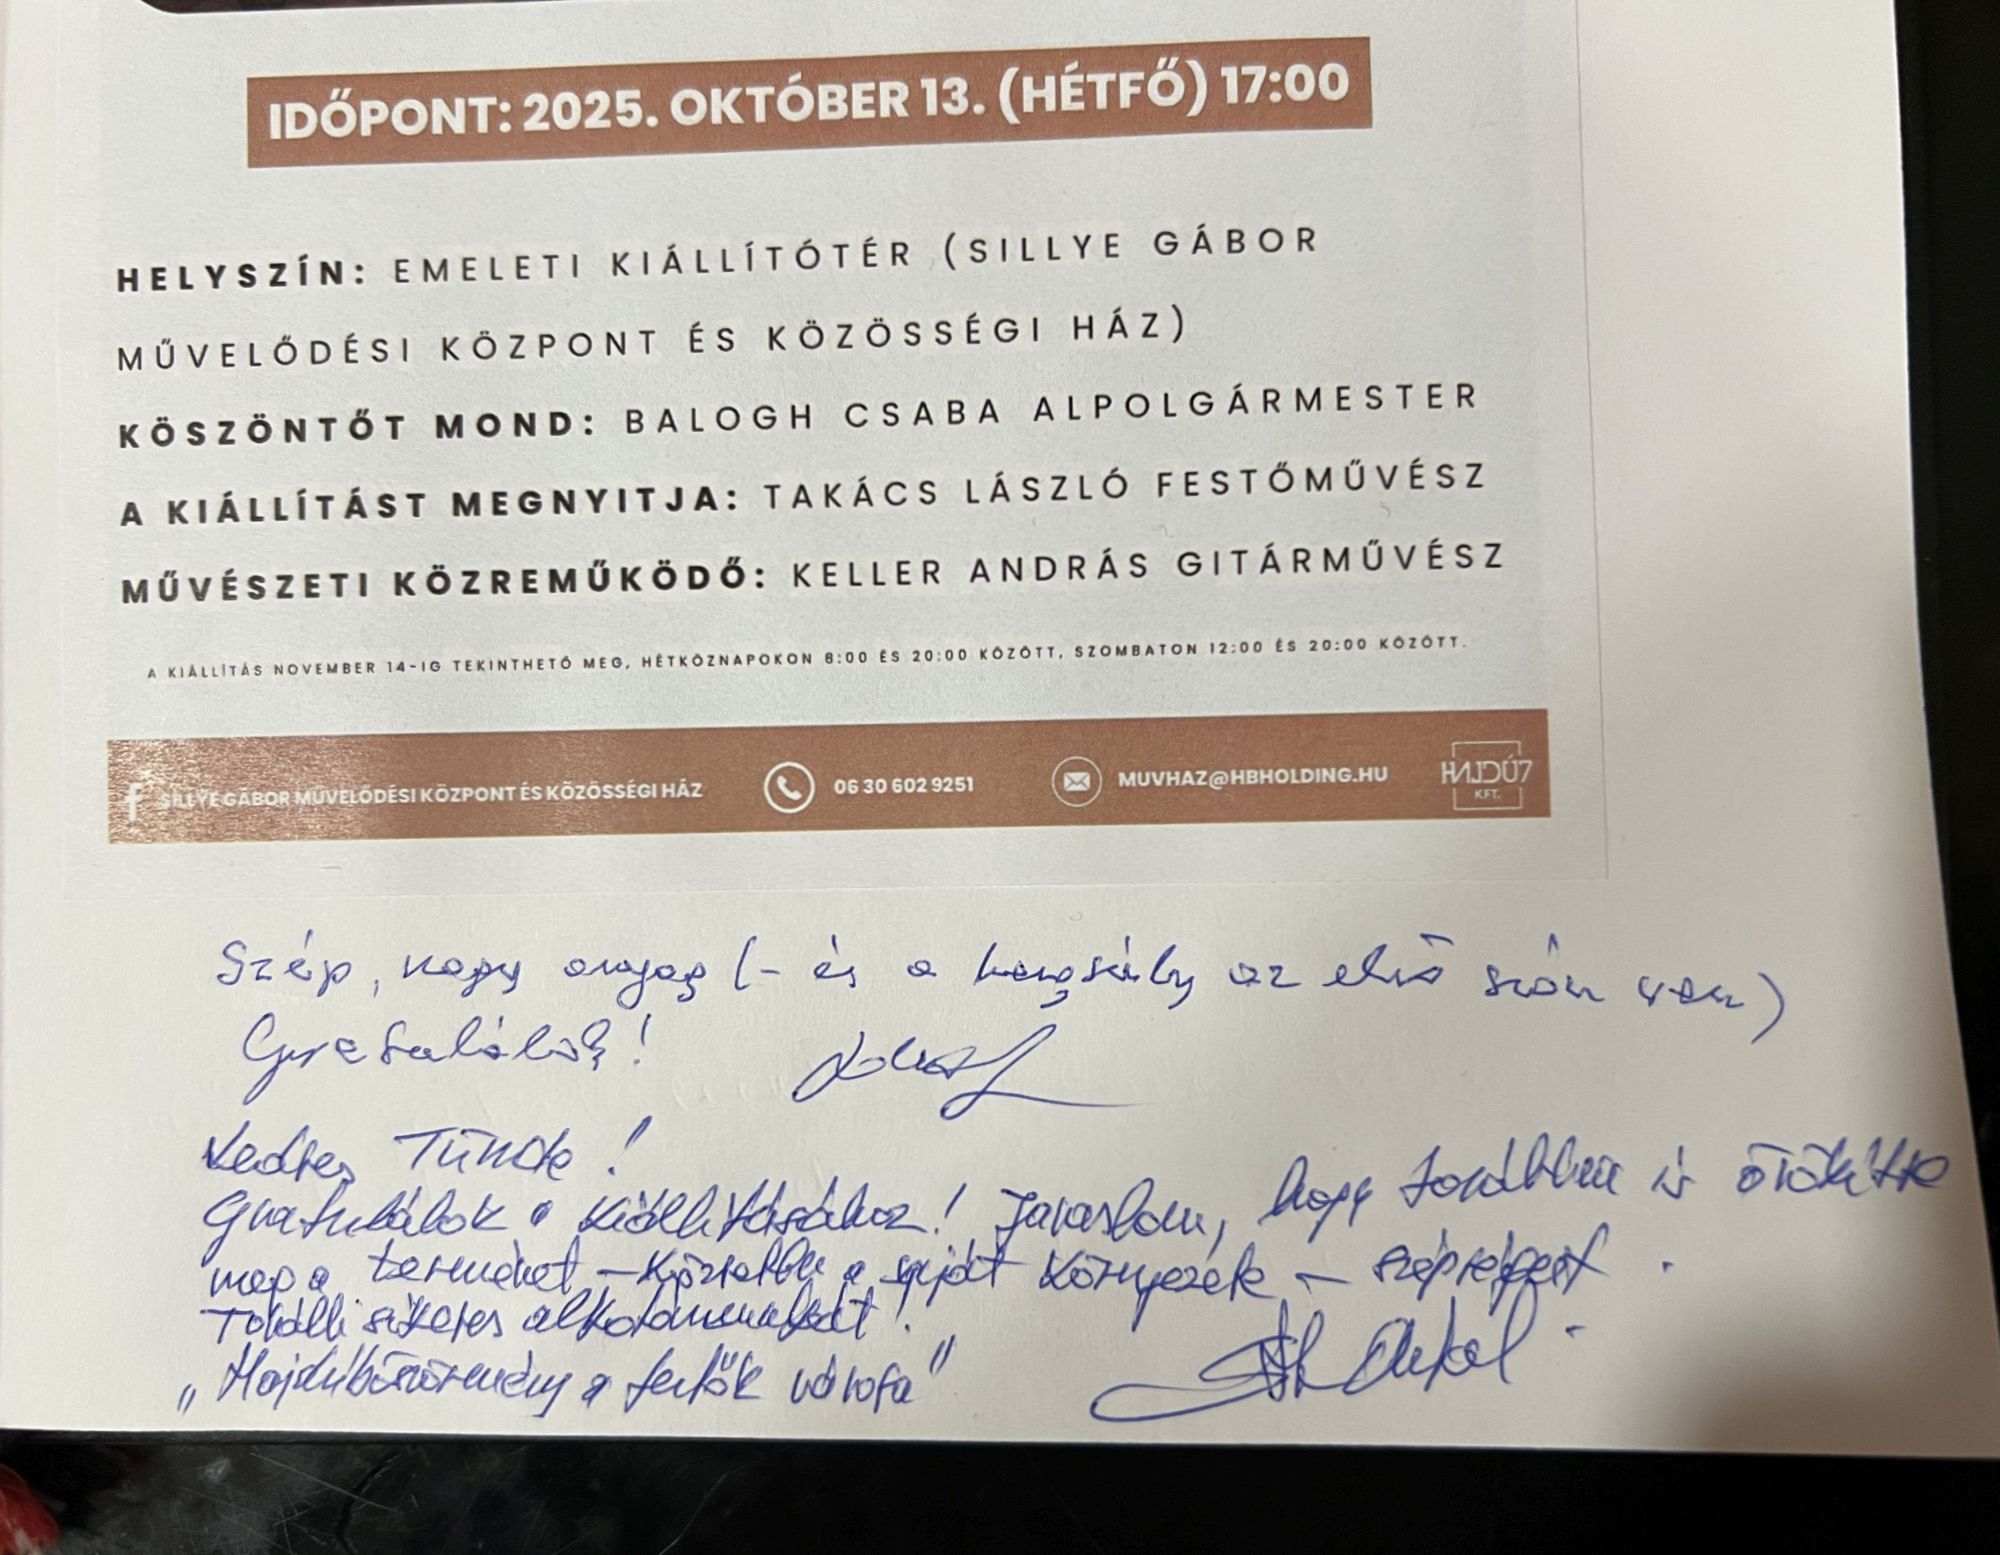 IDŐPONT: 2025. OKTÓBER 13. (HÉTFŐ) 17:00
HELYSZÍN: EMELETI KIÁLLÍTÓTÉR (SILLYE GÁBOR
MŰVELŐDÉSI KÖZPONT ÉS KÖZÖSSÉGI HÁZ)
KÖSZÖNTŐT MOND: BALOGH CSABA ALPOLGÁRMESTER
A KIÁLLÍTÁST MEGNYITJA: TAKÁCS LÁSZLÓ FESTŐMŰVÉSZ
MŰVÉSZETI KÖZREMŰKÖDŐ: KELLER ANDRÁS GITÁRMŰVÉSZ
A KIÁLLÍTÁS NOVEMBER 14-IG TEKINTHETŐ MEG, HÉTKÖZNAPOKON 8:00 ÉS 20:00 KÖZÖTT, SZOMBATON 12:00 ÉS 20:00 KÖZÖTT.
SILLYE GÁBOR MŰVELŐDÉSI KÖZPONT ÉS KÖZÖSSÉGI HÁZ 06 30 602 9251 MUVHAZ@HBHOLDING.HU HAJDÚ7 KFT.
Szép, nagy anyag (- és a hangsúly az első szón van)
Gratulálok!
Kedves Tünde!
Gratulálok a kiállításához! Javaslom, hogy továbbra is örökítse
meg a természet - közelebbi a saját környezete - szépségeit.
További sikeres alkotómunkát!
"Hajdúböszörmény a festők városa"